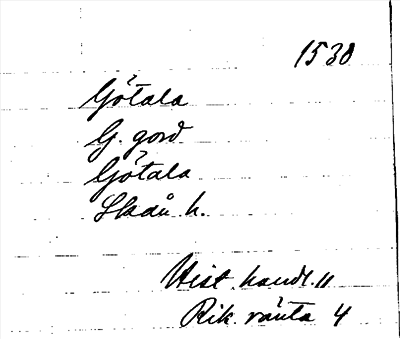 1538
Götala
G. gord
Götala
Skån h.
Hist. handl. 11
Rik. ränta 4